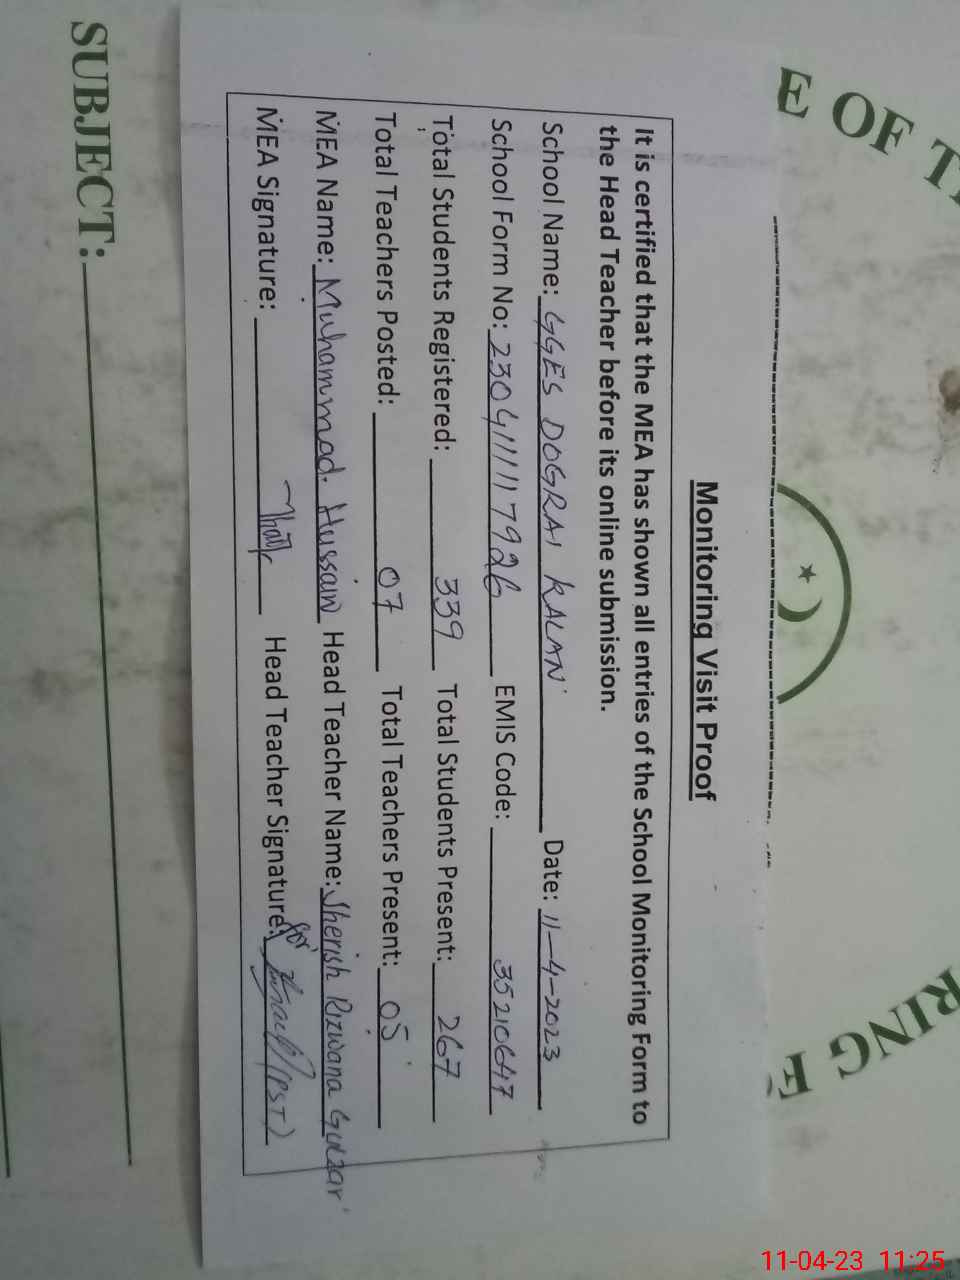 E OF T
RING F
Monitoring Visit Proof
It is certified that the MEA has shown all entries of the School Monitoring Form to
the Head Teacher before its online submission.
School Name: GGES DOGRAI KALAN Date: 11-4-2023
School Form No: 2304111117926 EMIS Code: 35210647
Total Students Registered: 339 Total Students Present: 267
Total Teachers Posted: 07 Total Teachers Present: 05
MEA Name: Muhammad Hussain Head Teacher Name: Sherish Rizwana Gulzar
MEA Signature: Head Teacher Signature: for (PST)
SUBJECT:
11-04-23 11:25